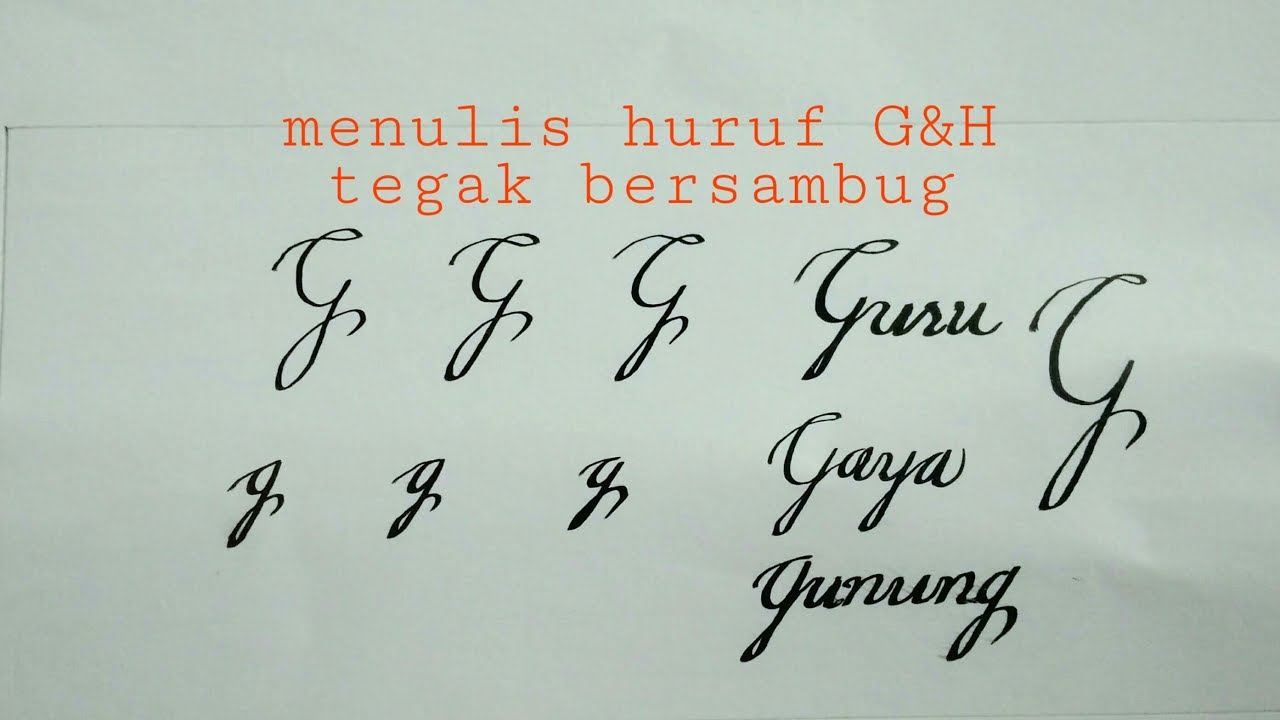 menulis huruf G&H
tegak bersambug
G G G Guru G
g g g Gaya
gunung